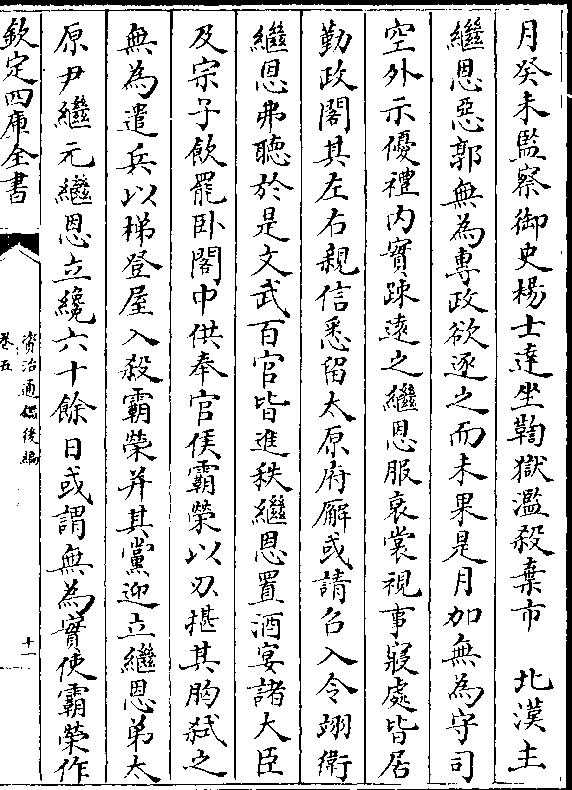 月癸未監察御史楊士達坐鞫獄濫殺棄市　北漢主
繼恩惡郭無為專政欲逐之而未果是月加無為守司
空外示優禮内實踈遠之繼恩服衰裳視事寢處皆居
勤政閣其左右親信悉留太原府廨或請召入令翊衛
繼恩弗聽於是文武百官皆進秩繼恩置酒宴諸大臣
及宗子飲罷卧閣中供奉官侯霸榮以刃揕其胸弑之
無為遣兵以梯登屋入殺霸榮并其黨迎立繼恩弟太
原尹繼元繼恩立纔六十餘日或謂無為實使霸榮作
欽定四庫全書
資治通鑑後編
卷五
十一